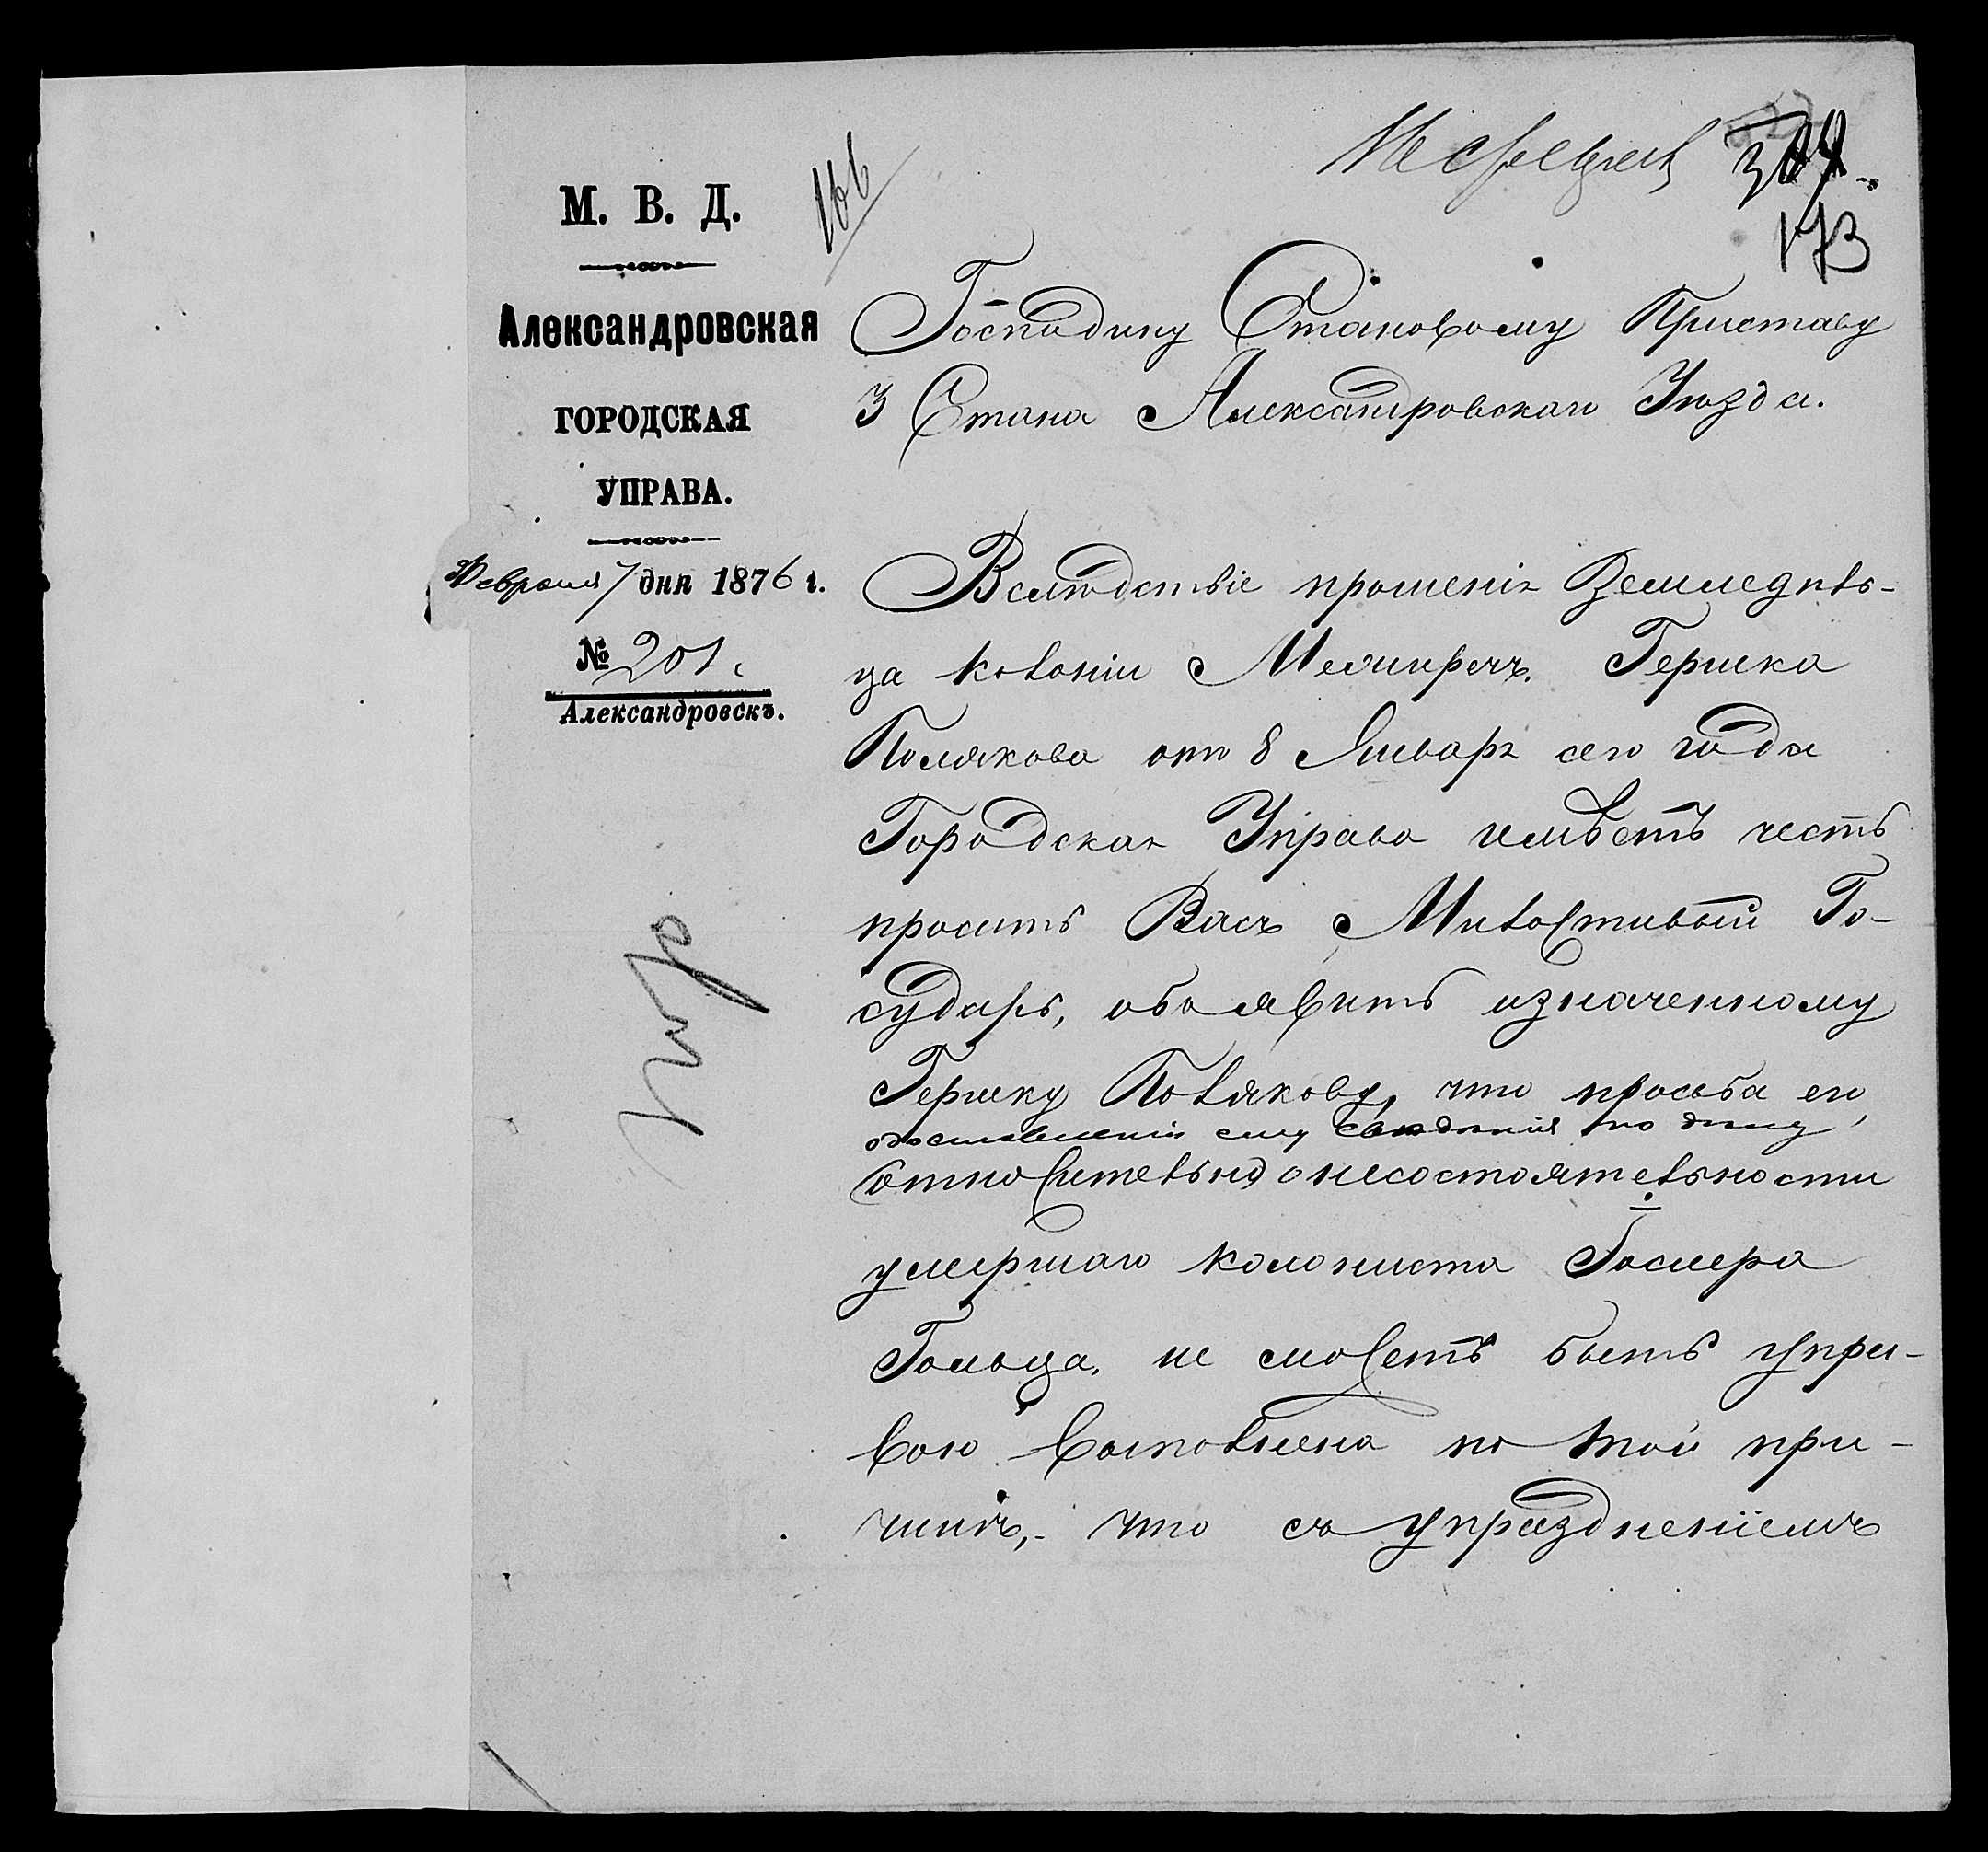 М. В. Д.
Александровская
ГОРОДСКАЯ
УПРАВА.
Февраля 7 дня 1876 г.
№ 201.
Александровскъ.
166
173
Господину Становому Приставу
3 Стана Александровскаго Уѣзда.
Вслѣдствіе прошенія Земледѣль-
ца колоніи Межиречъ. Гершка
Полякова отъ 8 Января сего года
Городская Управа имѣетъ честь
просить Васъ Милостивый Го-
сударь, объявить означенному
Гершку Полякову, что просьба его,
о доставленіи ему свѣдѣнія по дѣлу
относительно о несостоятельности
умершаго колониста
не можетъ быть Упра-
вою выполнена по той при-
чинѣ, что съ упраздненіемъ